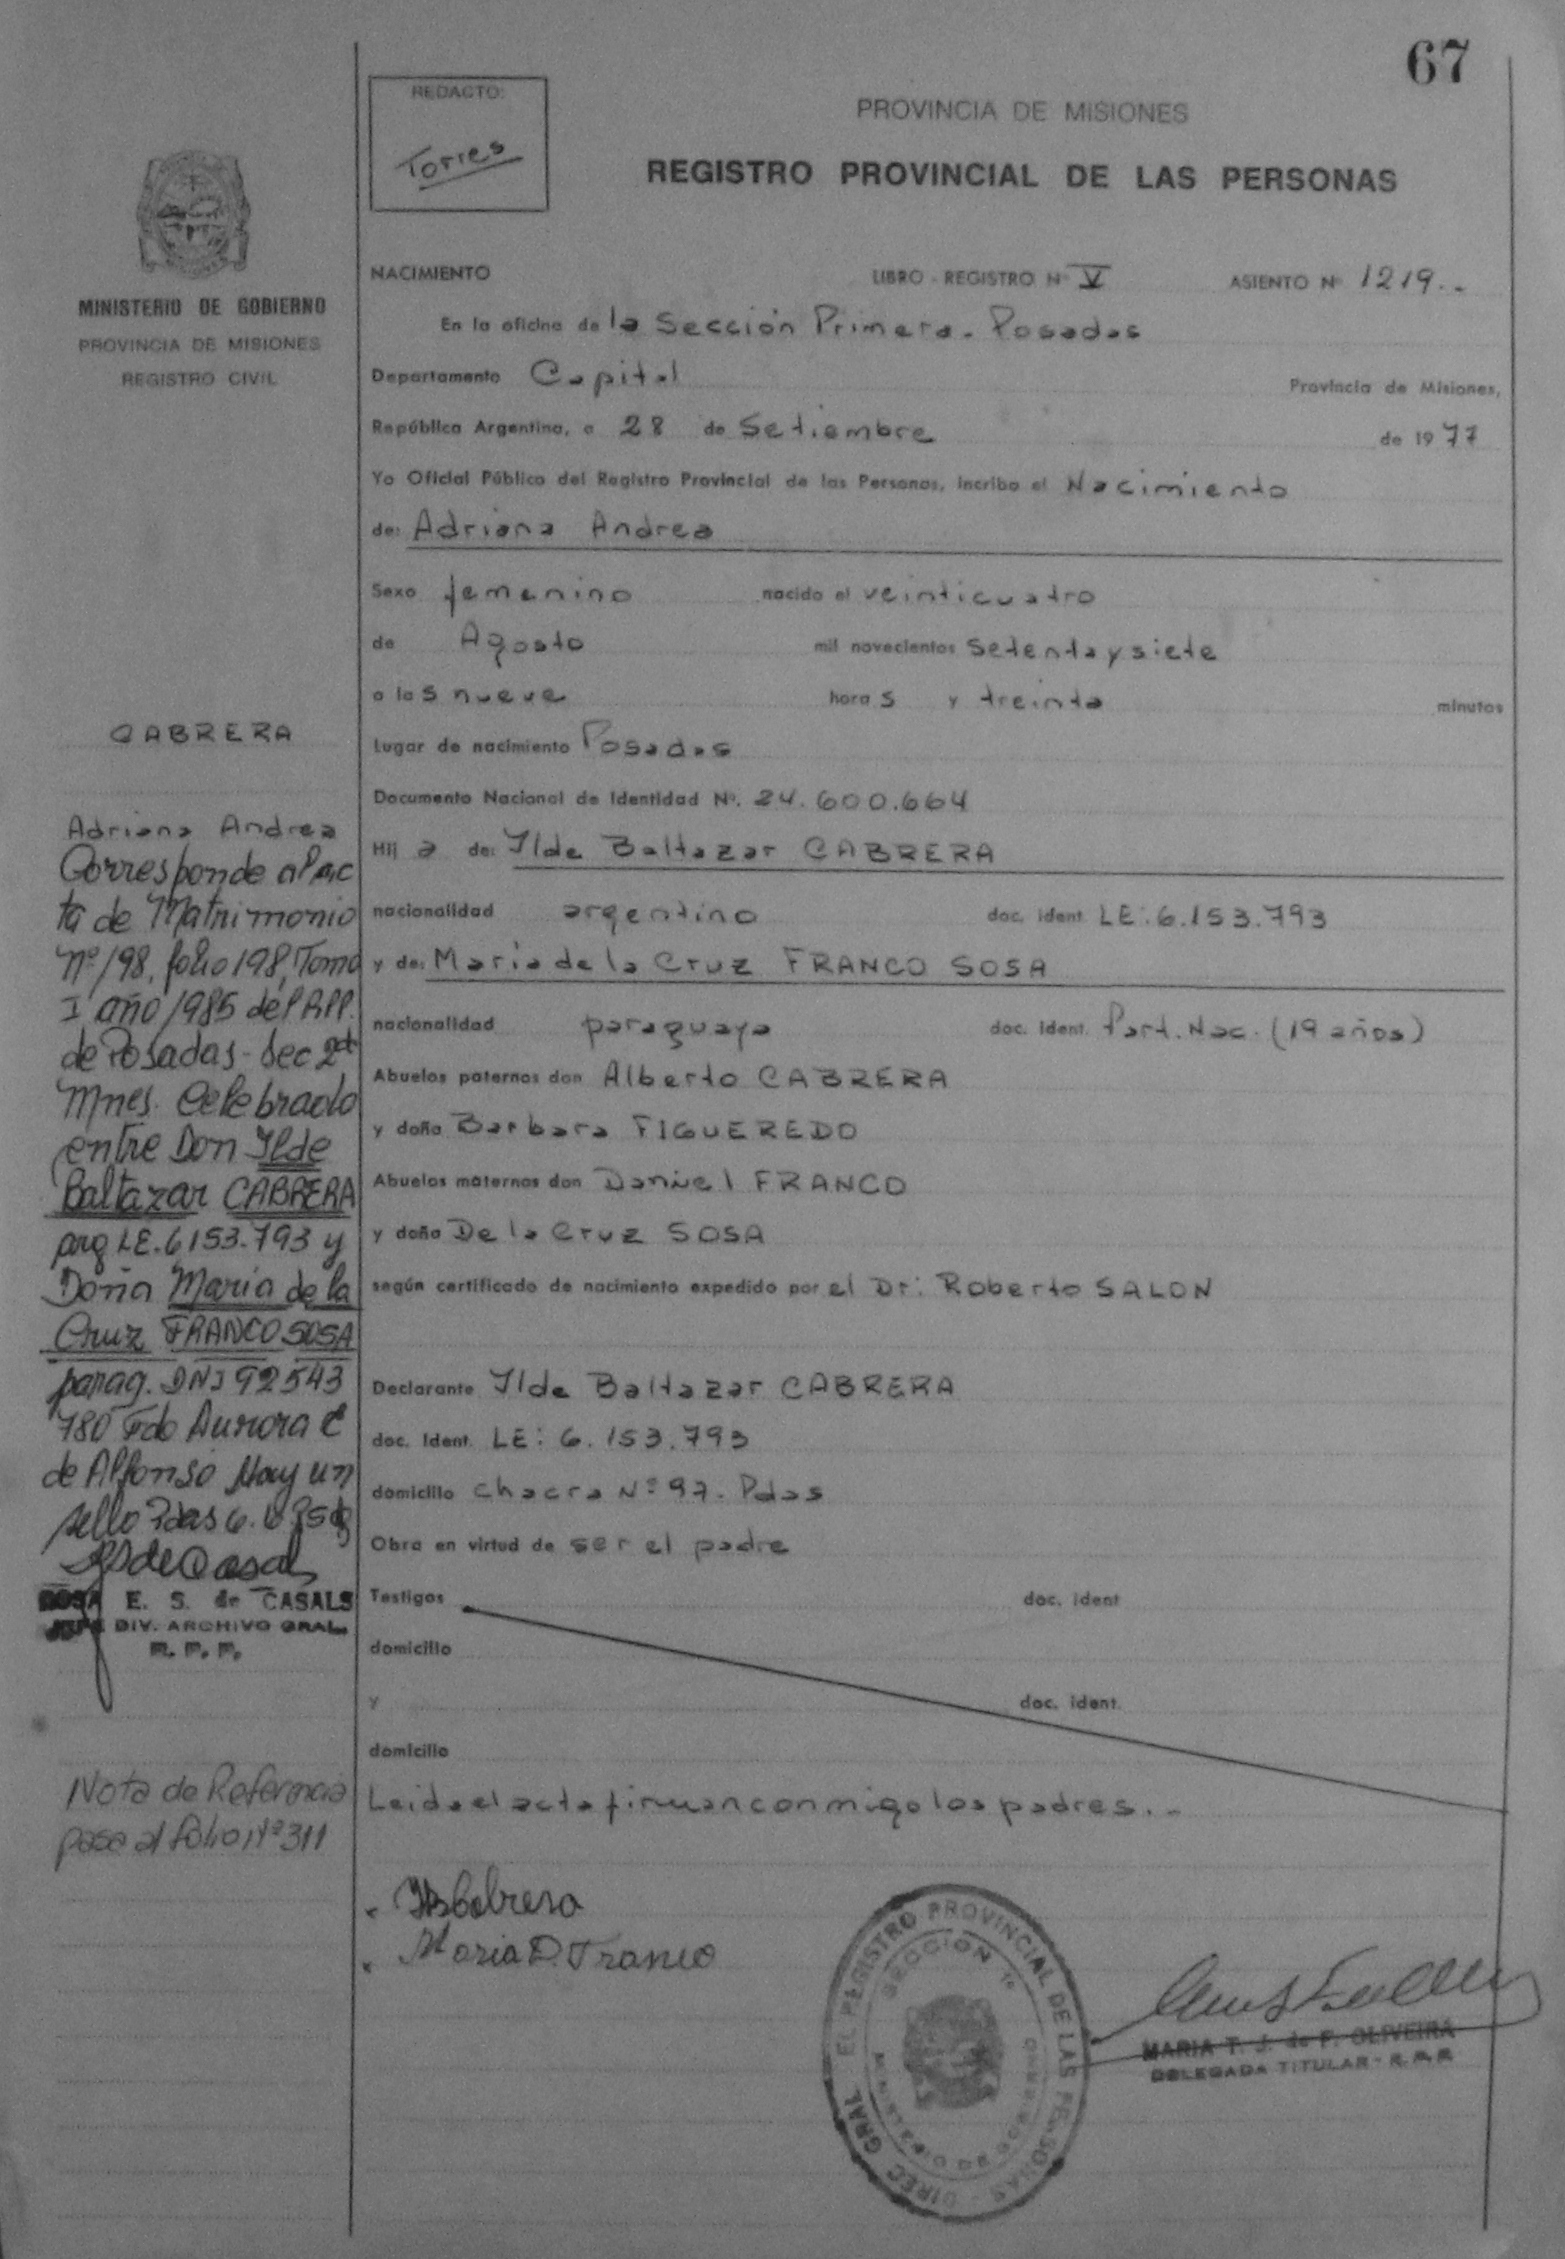 67
REDACTO:
Torres
PROVINCIA DE MISIONES
REGISTRO PROVINCIAL DE LAS PERSONAS
MINISTERIO DE GOBIERNO
PROVINCIA DE MISIONES
REGISTRO CIVIL
NACIMIENTO LIBRO - REGISTRO Nº V ASIENTO Nº 1219..
En la oficina de la Sección Primera. Posadas
Departamento Capital Provincia de Misiones,
República Argentina, a 28 de Setiembre de 1977
Yo Oficial Público del Registro Provincial de las Personas, incribo el Nacimiento
de: Adriana Andrea
Sexo femenino nacido el veinticuatro
de Agosto mil novecientos setenta y siete
a las nueve horas y treinta minutos
Lugar de nacimiento Posadas
Documento Nacional de Identidad Nº. 24.600.664
Hija de: Ilde Baltazar CABRERA
nacionalidad argentino doc. ident. LE: 6.153.793
y de: Maria de la Cruz FRANCO SOSA
nacionalidad paraguaya doc. ident. Part. Nac. (19 años)
Abuelos paternos don Alberto CABRERA
y doña Barbara FIGUEREDO
Abuelos maternos don Daniel FRANCO
y doña De la Cruz SOSA
según certificado de nacimiento expedido por el Dr: Roberto SALON
Declarante Ilde Baltazar CABRERA
doc. Ident. LE: 6.153.793
domicilio Chacra Nº 97. Pdas
Obra en virtud de ser el padre
Testigos doc. ident
domicilio
y doc. ident.
domicilio
Leida el acta firman conmigo los padres..
CABRERA
Adriana Andrea
Corresponde al ac
ta de Matrimonio
Nº 198, folio 198, Tomo
I año 1985 del RPP.
de Posadas - Sec 2da
Mnes. Celebrado
entre Don Ilde
Baltazar CABRERA
arg LE. 6153.793 y
Doña Maria de la
Cruz FRANCO SOSA
parag. DNI 92543
780 Fdo Aurora C
de Alfonso Hay un
sello Pdas 6.
ROSA E. S. de CASALS
JEFE DIV. ARCHIVO GRAL.
R. P. P.
Nota de Referencia
pasa al folio Nº 311
Maria D. Franco
DIREC. GRAL. EL REGISTRO PROVINCIAL DE LAS PERSONAS
SECCION 1º
MINISTERIO DE GOBIERNO
MARIA T. J. de F. OLIVEIRA
DELEGADA TITULAR - R.P.P.